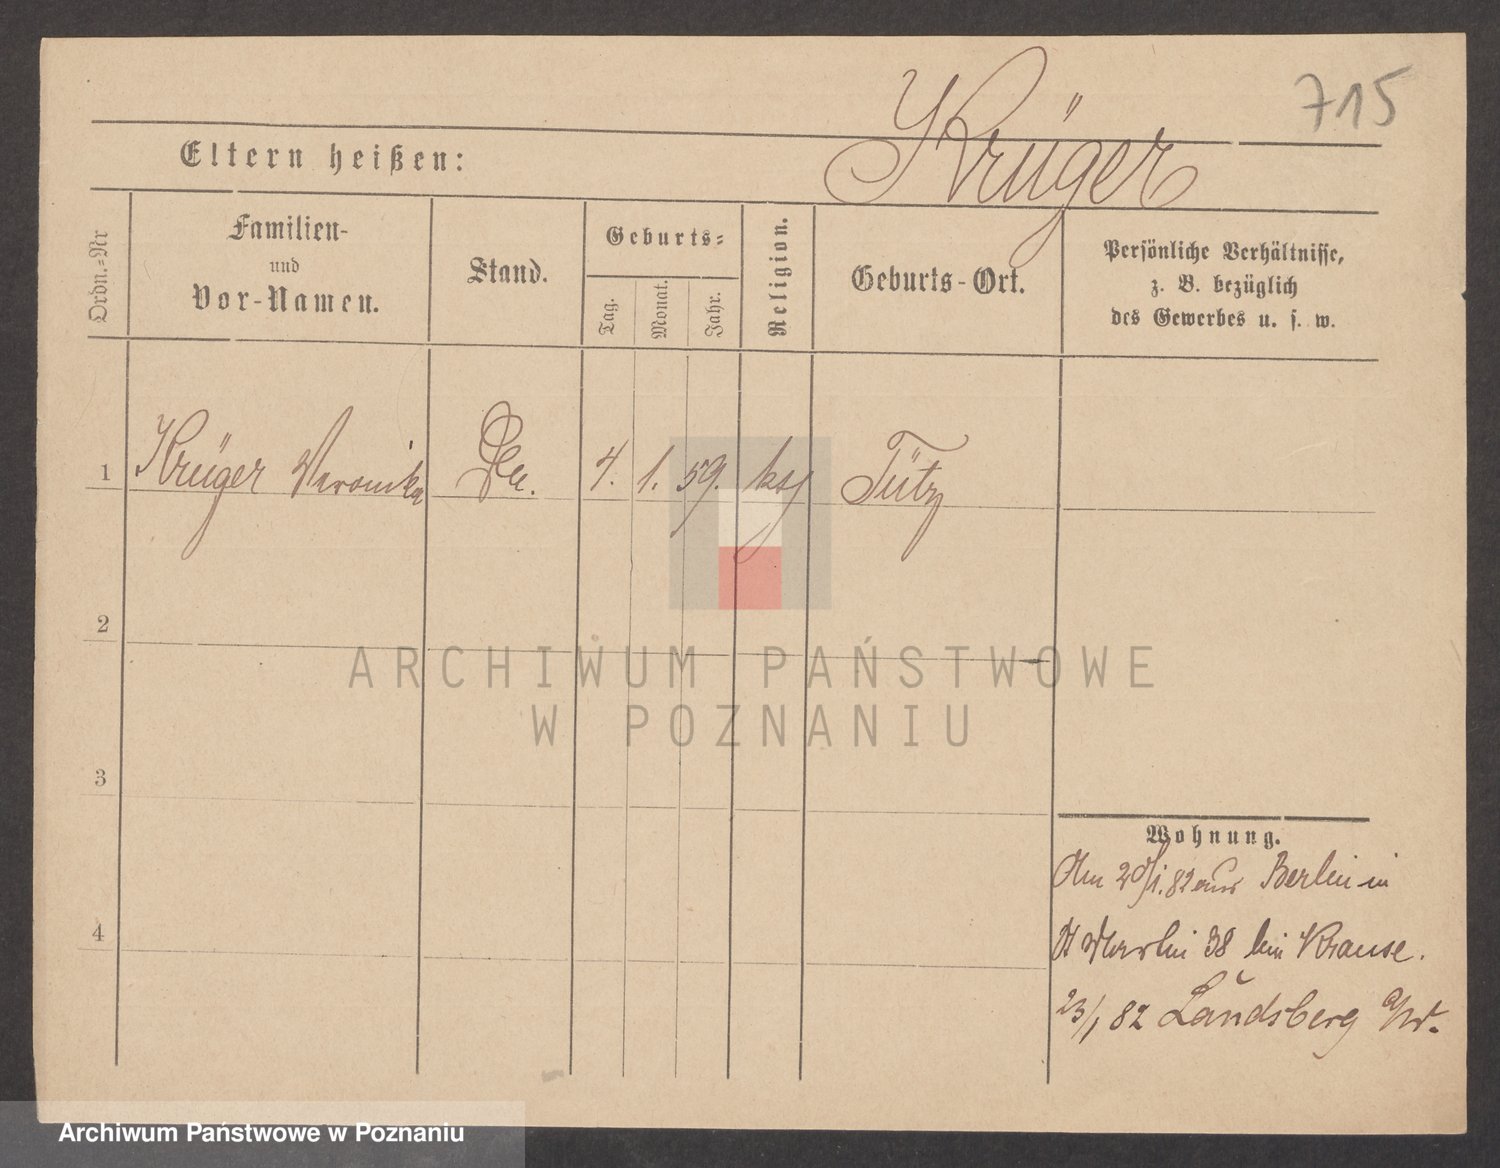 715
Krüger
Eltern heißen:
Ordn.=Nr
Familien-
und
Vor-Namen.
Stand.
Geburts=
Tag.
Monat.
Jahr.
Religion.
Geburts-Ort.
Persönliche Verhältnisse,
z. B. bezüglich
des Gewerbes u. s. w.
1 Krüger Veronika 4. 1. 59. Tütz
2
3
4
Wohnung.
Am 20/1. 82 aus Berlin in
38 bei Krause.
23/1 82 Landsberg a/W.
ARCHIWUM PAŃSTWOWE
W POZNANIU
Archiwum Państwowe w Poznaniu